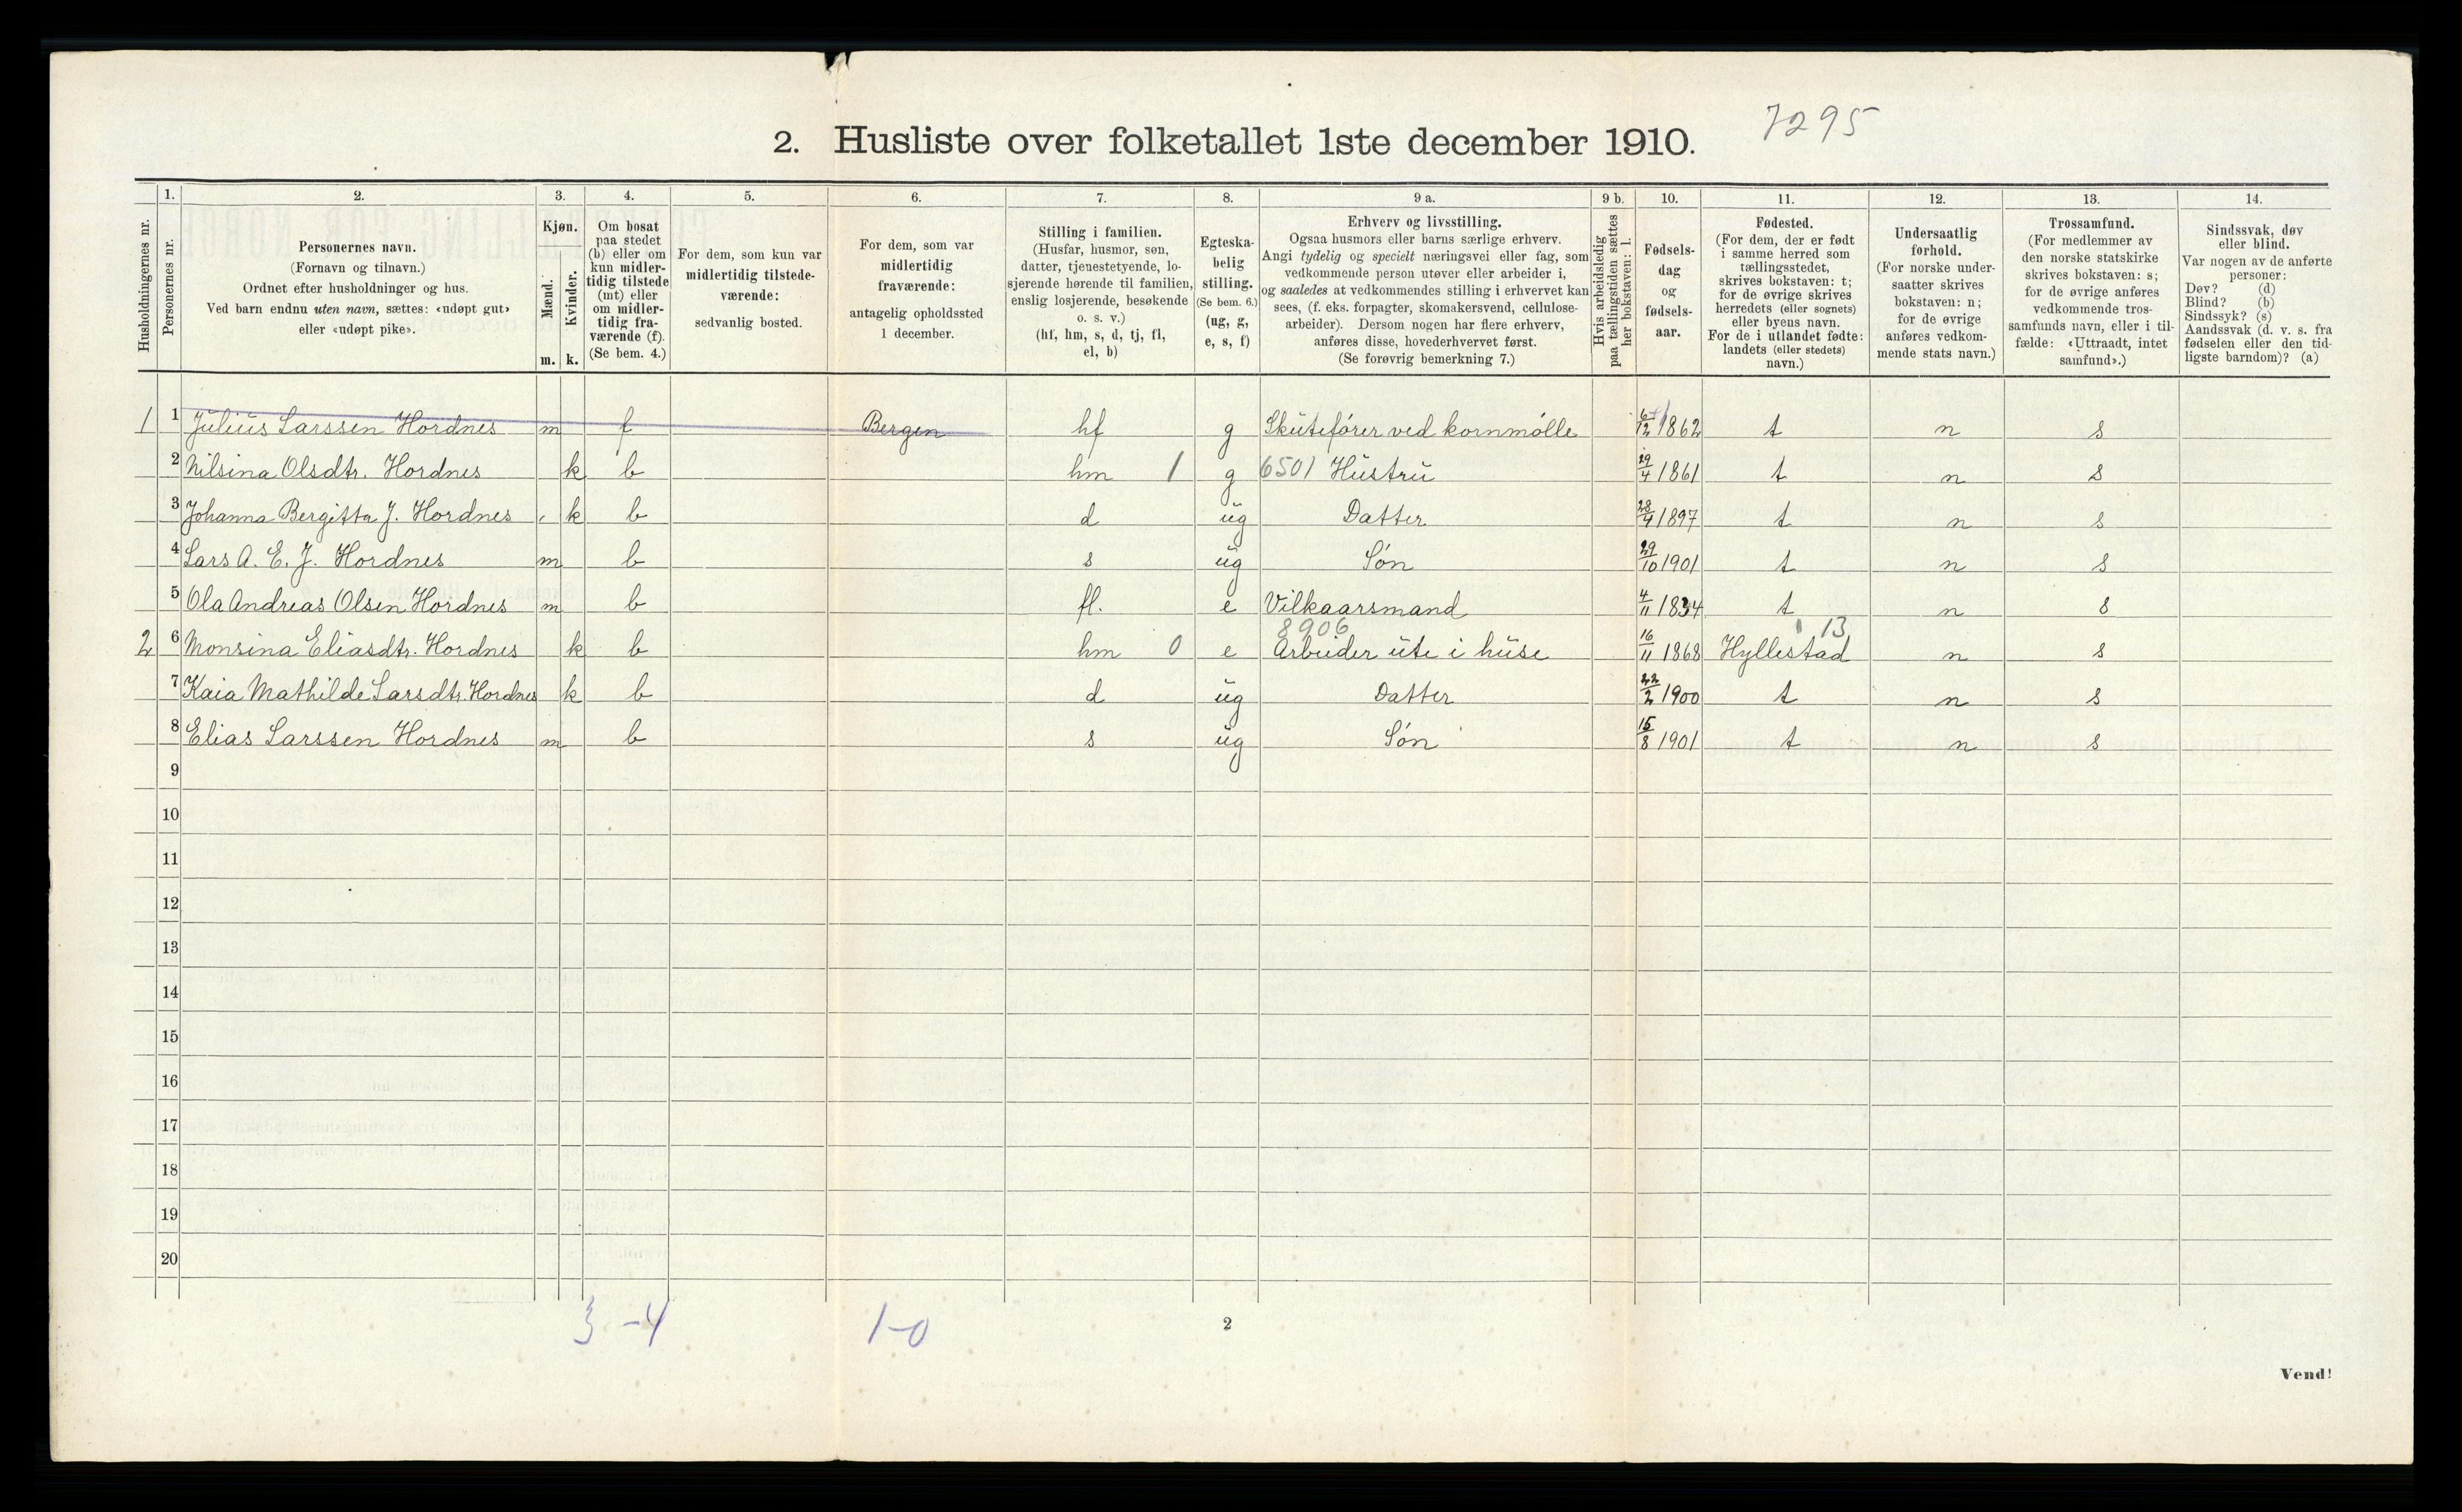 7295
2. Husliste over folketallet 1ste december 1910.
Husholdningernes nr.
1.
Personernes nr.
2.
Personernes navn.
(Fornavn og tilnavn.)
Ordnet efter husholdninger og hus.
Ved barn endnu uten navn, sættes: «udøpt gut»
eller «udøpt pike».
3.
Kjøn.
Mænd.
Kvinder.
m. k.
4.
Om bosat
paa stedet
(b) eller om
kun midler-
tidig tilstede
(mt) eller
om midler-
tidig fra-
værende (f).
(Se bem. 4.)
5.
For dem, som kun var
midlertidig tilstede-
værende:
sedvanlig bosted.
6.
For dem, som var
midlertidig
fraværende:
antagelig opholdssted
1 december.
7.
Stilling i familien.
(Husfar, husmor, søn,
datter, tjenestetyende, lo-
sjerende hørende til familien,
enslig losjerende, besøkende
o. s. v.)
(hf, hm, s, d, tj, fl,
el, b)
8.
Egteska-
belig
stilling.
(Se bem. 6.)
(ug, g,
e, s, f)
9 a.
Erhverv og livsstilling.
Ogsaa husmors eller barns særlige erhverv.
Angi tydelig og specielt næringsvei eller fag, som
vedkommende person utøver eller arbeider i,
og saaledes at vedkommendes stilling i erhvervet kan
sees, (f. eks. forpagter, skomakersvend, cellulose-
arbeider). Dersom nogen har flere erhverv,
anføres disse, hovederhvervet først.
(Se forøvrig bemerkning 7.)
9 b.
Hvis arbeidsledig
paa tællingstiden sættes
her bokstaven: l.
10.
Fødsels-
dag
og
fødsels-
aar.
11.
Fødested.
(For dem, der er født
i samme herred som
tællingsstedet,
skrives bokstaven: t;
for de øvrige skrives
herredets (eller sognets)
eller byens navn.
For de i utlandet fødte:
landets (eller stedets)
navn.)
12.
Undersaatlig
forhold.
(For norske under-
saatter skrives
bokstaven: n;
for de øvrige
anføres vedkom-
mende stats navn.)
13.
Trossamfund.
(For medlemmer av
den norske statskirke
skrives bokstaven: s;
for de øvrige anføres
vedkommende tros-
samfunds navn, eller i til-
fælde: «Uttraadt, intet
samfund».)
14.
Sindssvak, døv
eller blind.
Var nogen av de anførte
personer:
Døv? (d)
Blind? (b)
Sindssyk? (s)
Aandssvak (d. v. s. fra
fødselen eller den tid-
ligste barndom)? (a)
1 1 Julius Larssen Hordnes m f Bergen hf g Skutefører ved kornmølle 6/12 1862 t n s
2 Nilsina Olsdtr. Hordnes k b hm 1 g 6501 Hustru 29/4 1861 t n s
3 Johanna Bergitta J. Hordnes k b d ug Datter 28/4 1897 t n s
4 Lars A. E. J. Hordnes m b s ug Søn 29/10 1901 t n s
5 Ola Andreas Olsen Hordnes m b fl. e Vilkaarsmand 4/11 1834 t n s
8906 13
2 6 Monsina Eliasdtr. Hordnes k b hm 0 e Arbeider ute i huse 16/11 1868 Hyllestad n s
7 Kaia Mathilde Larsdtr. Hordnes k b d ug Datter 22/2 1900 t n s
8 Elias Larssen Hordnes m b s ug Søn 15/8 1901 t n s
9
10
11
12
13
14
15
16
17
18
19
20
3-4 1-0
2
Vend!